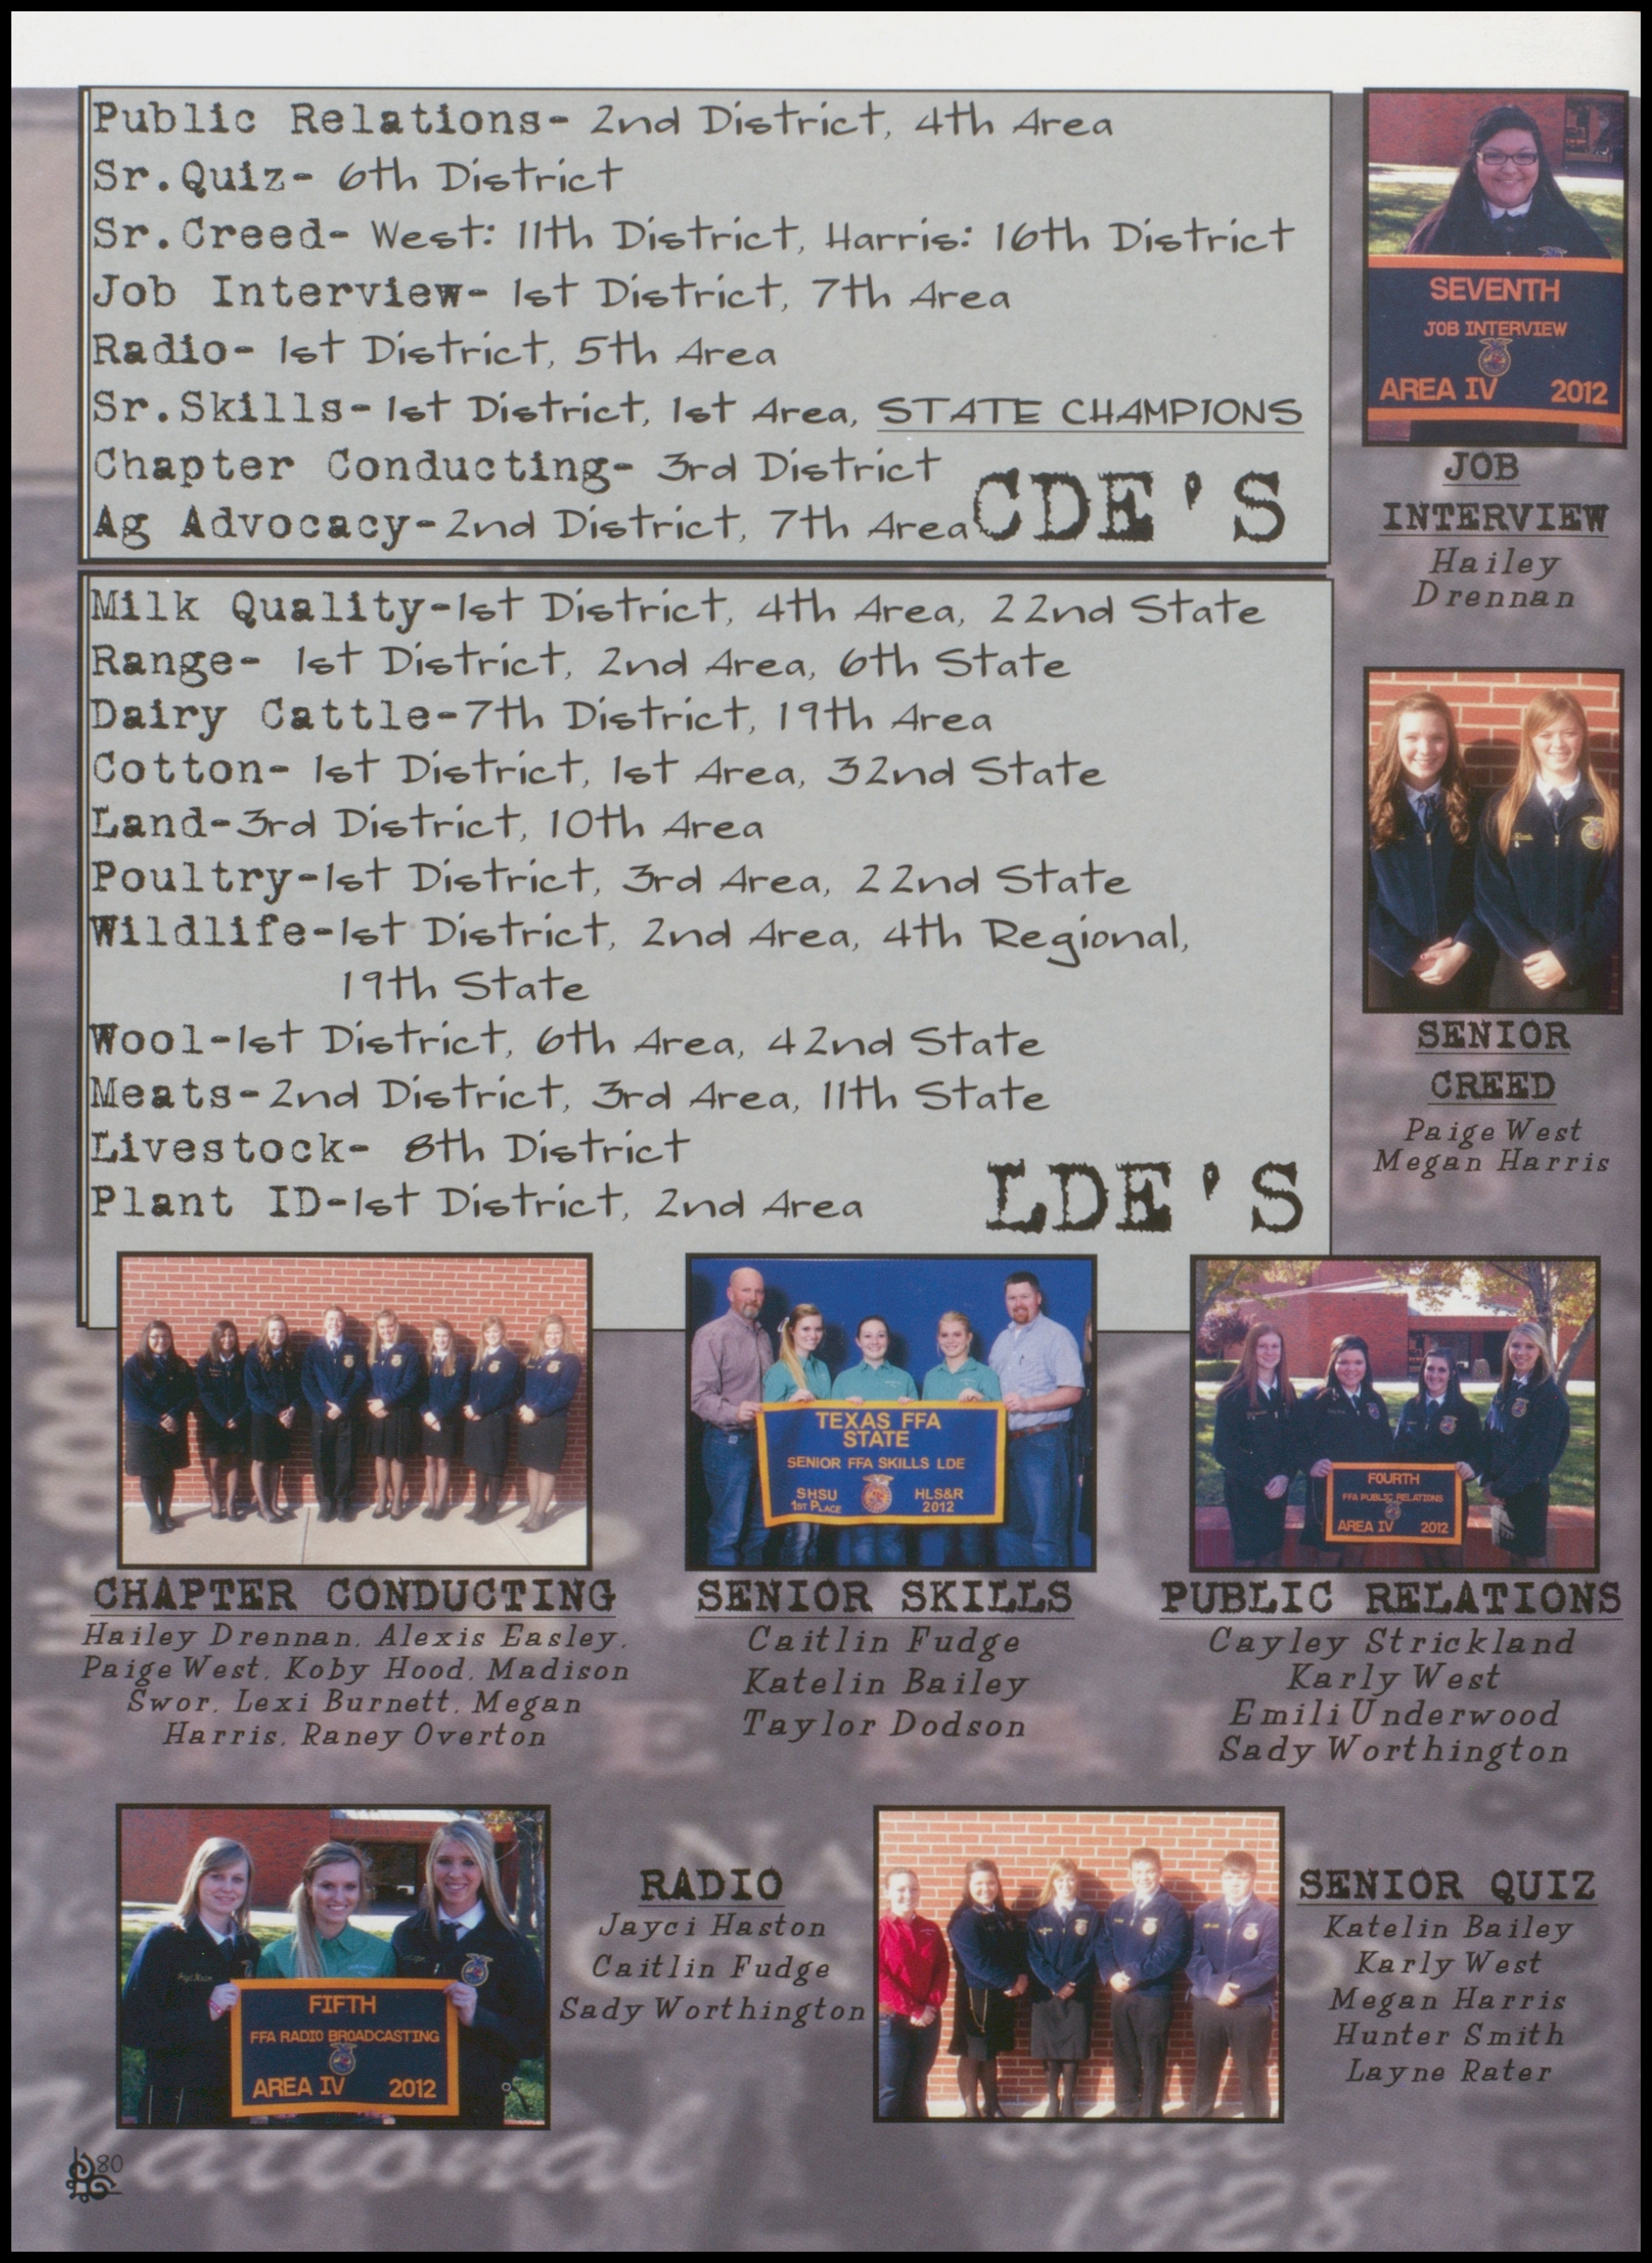 Public Relations- 2nd District, 4th Area
Sr.Quiz- 6th District
Sr.Creed- West: 11th District, Harris: 16th District
Job Interview- 1st District, 7th Area
Radio- 1st District, 5th Area
Sr.Skills- 1st District, 1st Area, STATE CHAMPIONS
Chapter Conducting- 3rd District
Ag Advocacy-2nd District, 7th Area
CDE'S
Milk Quality-1st District, 4th Area, 22nd State
Range- 1st District, 2nd Area, 6th State
Dairy Cattle-7th District, 19th Area
Cotton- 1st District, 1st Area, 32nd State
Land-3rd District, 10th Area
Poultry-1st District, 3rd Area, 22nd State
Wildlife-1st District, 2nd Area, 4th Regional,
19th State
Wool-1st District, 6th Area, 42nd State
Meats-2nd District, 3rd Area, 11th State
Livestock- 8th District
Plant ID-1st District, 2nd Area
LDE'S
SEVENTH
JOB INTERVIEW
AREA IV 2012
JOB
INTERVIEW
Hailey
Drennan
SENIOR
CREED
Paige West
Megan Harris
CHAPTER CONDUCTING
Hailey Drennan, Alexis Easley,
Paige West, Koby Hood, Madison
Swor, Lexi Burnett, Megan
Harris, Raney Overton
TEXAS FFA
STATE
SENIOR FFA SKILLS LDE
SHSU HLS&R
1ST PLACE 2012
SENIOR SKILLS
Caitlin Fudge
Katelin Bailey
Taylor Dodson
FOURTH
FFA PUBLIC RELATIONS
AREA IV 2012
PUBLIC RELATIONS
Cayley Strickland
Karly West
Emili Underwood
Sady Worthington
FIFTH
FFA RADIO BROADCASTING
AREA IV 2012
RADIO
Jayci Haston
Caitlin Fudge
Sady Worthington
SENIOR QUIZ
Katelin Bailey
Karly West
Megan Harris
Hunter Smith
Layne Rater
National
Since
1928
80